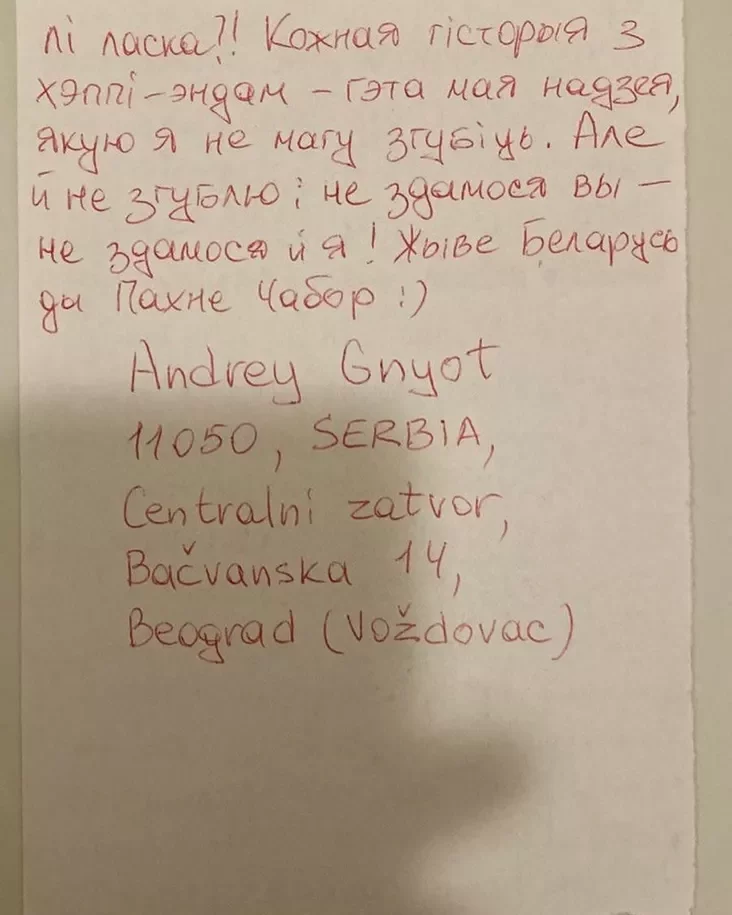 лі ласка?! Кожная гісторыя з
хэппі-эндам – гэта мая надзея,
якую я не магу згубіць. Але
й не згублю; не здамося вы –
не здамося й я! Жыве Беларусь
ды Пахне Чабор :)
Andrey Gnyot
11050, SERBIA,
Centralni zatvor,
Bačvanska 14,
Beograd (Voždovac)